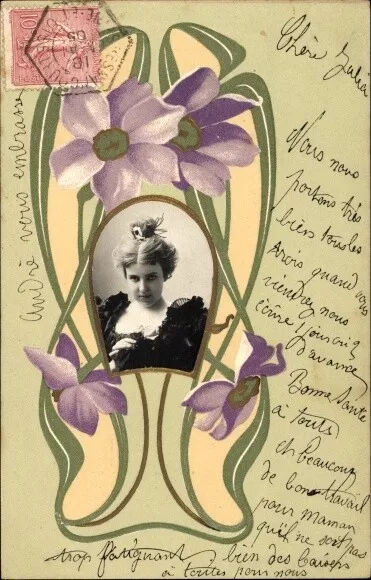 Chère Julia
Nous nous
portons très
bien tous les
trois quand vous
viendrez nous
écrire 1 jour
d'avance
Bonne Santé
à touts
et beaucoup
de bon travail
pour maman
qu'il ne soit pas
trop fatiguant bien des baisers
à toutes pour nous
André vous embrasse
10